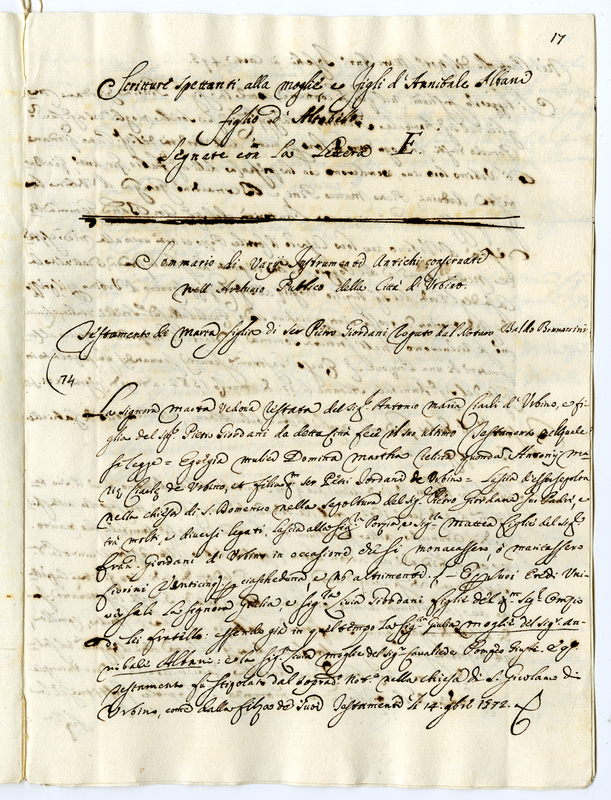 17
Scritture spettanti alla moglie e figli d'Annibale Albani
figlio d'Altobello.
Segnate con la Lettera E.
Sommario di Varij Instrumenti Antichi conservati
nell'Archivio Publico della Città di Urbino.
Testamento di Marta figlia di ser Piero Giordani Rogato dal Notaro Baldo Brunaccini
174
La Signora Marta Vedova restata del Sigr Antonio Maria Ciarli d'Urbino, e fi-
glia del Sigr Piero Giordani da detta Città fece il suo ultimo Testamento nel quale
si legge = Egregia mulier Domina Martha relicta quondam Antonij Ma
riæ Ciarli de Urbino, et filia qm ser Petri Jordani de Urbino = Lascia d'esser sepolta
nella chiesa di S. Domenico nella sepoltura del Sigr Pietro Giordani suo Padre, e
trà molti, e diversi legati, lascia alla Sigra Porzia, e Sigra Mattea figlie del Sigr
Fran. Giordani di Urbino in occasione, che si monacassero, ò maritassero
fiorini Venticinque ciascheduna, e nò altrimenti. = E suoi Eredi Uni-
versali la signora Giulia, e Sigra Livia Giordani figlie del qm Sigr Orazio
di lei fratello: essendo già in quel tempo la Sigra Giulia moglie del Sigr An-
nibale Albani: e la Sigra Livia moglie del Sigr Cavalier Pompeo
testamento fù stipolato dal sopradº Notº nella chiesa di S. Girolamo di
Urbino, come dalla filza de suoi Testamenti li 14. 9bre 1572.